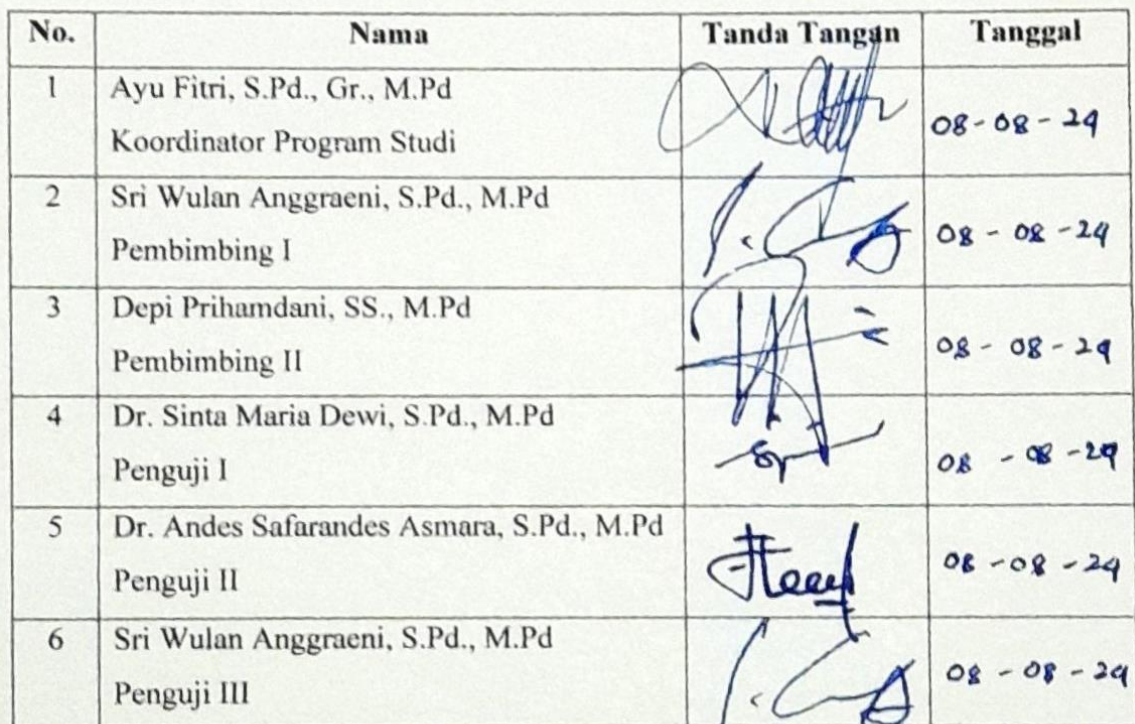 No. Nama Tanda Tangan Tanggal
1 Ayu Fitri, S.Pd., Gr., M.Pd
Koordinator Program Studi 08-08-24
2 Sri Wulan Anggraeni, S.Pd., M.Pd
Pembimbing I 08-08-24
3 Depi Prihamdani, SS., M.Pd
Pembimbing II 08-08-24
4 Dr. Sinta Maria Dewi, S.Pd., M.Pd
Penguji I 08-08-24
5 Dr. Andes Safarandes Asmara, S.Pd., M.Pd
Penguji II 08-08-24
6 Sri Wulan Anggraeni, S.Pd., M.Pd
Penguji III 08-08-24